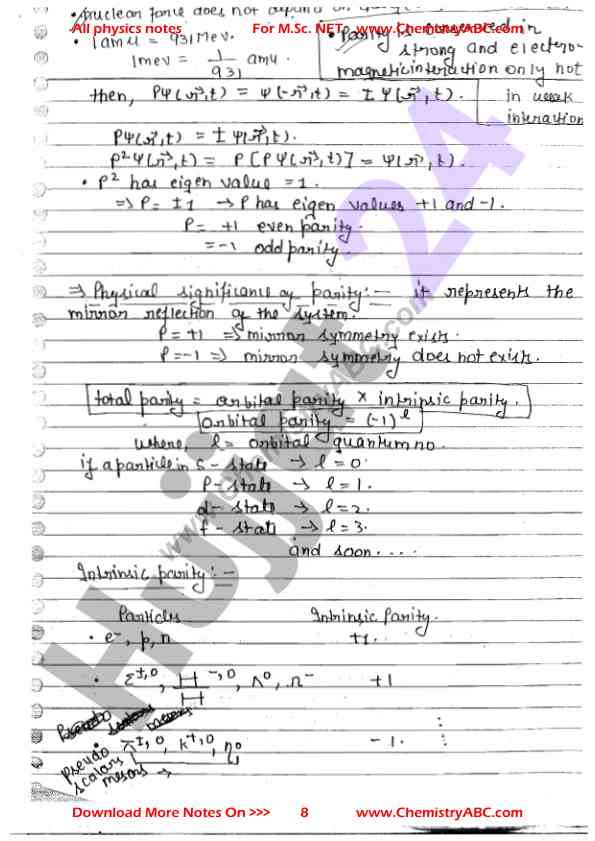 • nuclear force does not depend on
All physics notes For M.Sc. NET, www.ChemistryABC.com
• 1 amu = 931 Mev.
1 mev = 1/931 amu.
• Parity is conserved in
strong and electro-
magnetic interaction only not
in weak
interaction
then, Pψ(r⃗,t) = ψ(-r⃗,t) = ± ψ(r⃗,t).
Pψ(r⃗,t) = ± ψ(r⃗,t).
P²ψ(r⃗,t) = P[Pψ(r⃗,t)] = ψ(r⃗,t).
• P² has eigen value = 1.
⇒ P = ±1 → P has eigen values +1 and -1.
P = +1 even parity.
= -1 odd parity.
⇒ Physical significance of parity:- it represents the
mirror reflection of the system.
P = +1 ⇒ mirror symmetry exists.
P = -1 ⇒ mirror symmetry does not exists.
total parity = orbital parity × intrinsic parity.
orbital parity = (-1)^l
where l = orbital quantum no.
if a particle in s-state → l = 0.
p-state → l = 1.
d-state → l = 2.
f-state → l = 3.
and soon....
Intrinsic parity:-
Particles Intrinsic Parity.
• e⁻, p, n +1.
• Σ±,0, Ξ⁻,0, Λ⁰, Ω⁻ +1
Pseudo scalars mesons
• π±,0, K+,0, η0 -1.
pseudo
scalars
mesons →
Hujjat 24
www.ChemistryABC.com
Download More Notes On >>> 8 www.ChemistryABC.com